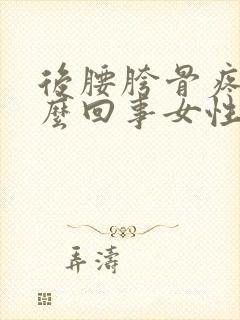 後腰胯骨疼
麼回事女性
弄濤